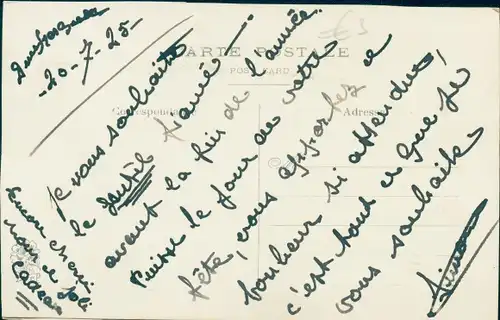 Dunkerque
-20-7-25-
CARTE POSTALE
POST CARD
Correspondance
Adresse
Je vous souhaite
le gentil fiancé
avant la fin de l'année.
Puisse le jour de votre
fête, vous apporter ce
bonheur si attendu,
c'est tout ce que je
vous souhaite
Simone
Encore merci
pour le joli
cadeau